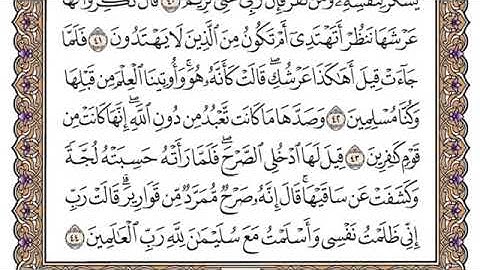 يَشْكُرُ لِنَفْسِهِۦ وَمَن كَفَرَ فَإِنَّ رَبِّى غَنِىٌّ كَرِيمٌ ٤٠ قَالَ نَكِّرُوا۟ لَهَا
عَرْشَهَا نَنظُرْ أَتَهْتَدِىٓ أَمْ تَكُونُ مِنَ ٱلَّذِينَ لَا يَهْتَدُونَ ٤١ فَلَمَّا
جَآءَتْ قِيلَ أَهَٰكَذَا عَرْشُكِ ۖ قَالَتْ كَأَنَّهُۥ هُوَ ۚ وَأُوتِينَا ٱلْعِلْمَ مِن قَبْلِهَا
وَكُنَّا مُسْلِمِينَ ٤٢ وَصَدَّهَا مَا كَانَت تَّعْبُدُ مِن دُونِ ٱللَّهِ ۖ إِنَّهَا كَانَتْ مِن
قَوْمٍ كَٰفِرِينَ ٤٣ قِيلَ لَهَا ٱدْخُلِى ٱلصَّرْحَ ۖ فَلَمَّا رَأَتْهُ حَسِبَتْهُ لُجَّةً
وَكَشَفَتْ عَن سَاقَيْهَا ۚ قَالَ إِنَّهُۥ صَرْحٌ مُّمَرَّدٌ مِّن قَوَارِيرَ ۗ قَالَتْ رَبِّ
إِنِّى ظَلَمْتُ نَفْسِى وَأَسْلَمْتُ مَعَ سُلَيْمَٰنَ لِلَّهِ رَبِّ ٱلْعَٰلَمِينَ ٤٤